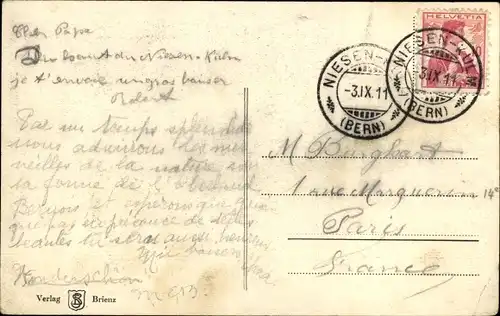 Cher Papa
Du haut du Niesen-Kulm
je t'envoie un gros baiser
Robert
Par un temps splendide
nous admirons les mer
veilles de la nature sous
la forme de l'Oberland
Bernois et espérons que quoi
que pas en présence de telles
beautés tu seras aussi heureux
Mil baisers
Wunderschön
HELVETIA
NIESEN-KULM
-3.IX.11
(BERN)
NIESEN-KULM
-3.IX.11
(BERN)
M Burghart
1 rue Marguerin 14e
Paris
France
Verlag SB Brienz